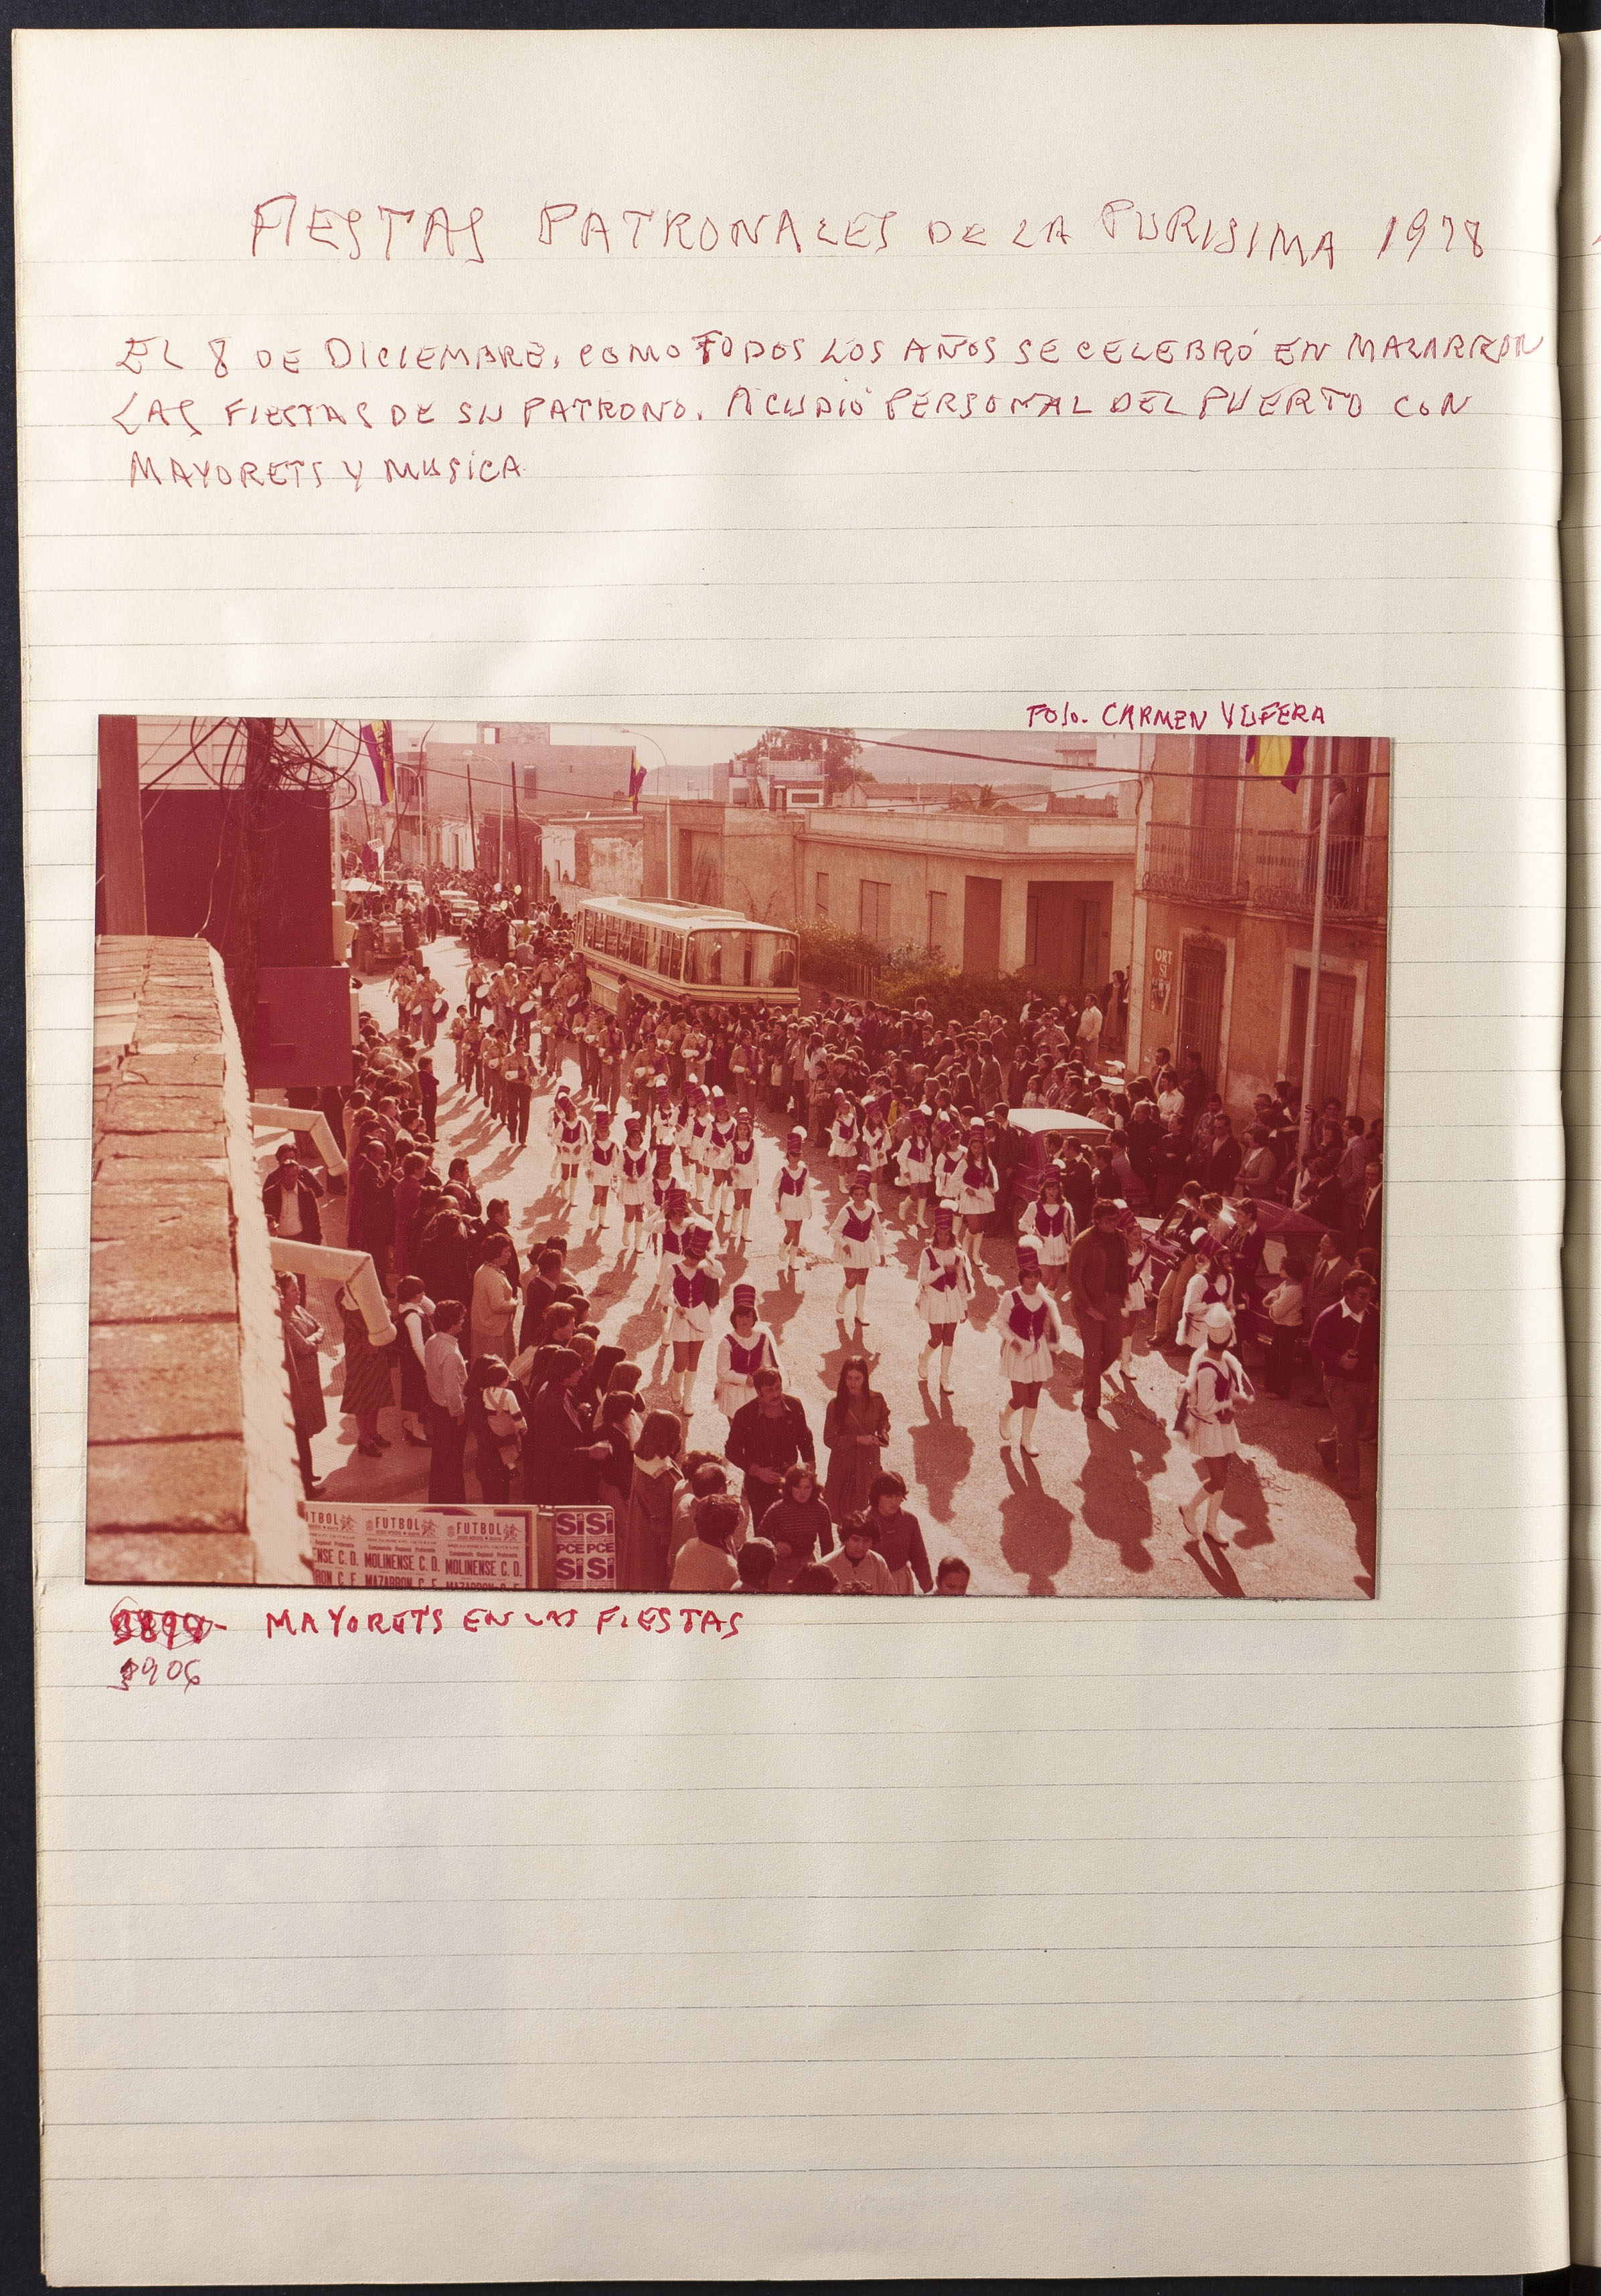 FIESTAS PATRONALES DE LA PURISIMA 1978
EL 8 DE DICIEMBRE, COMO TODOS LOS AÑOS SE CELEBRÓ EN MAZARRON
LAS FIESTAS DE SU PATRONO. ACUDIÓ PERSONAL DEL PUERTO CON
MAYORETS Y MUSICA
FOTO. CARMEN
ORT
SI
TBOL FUTBOL FUTBOL
ENSE C. D. MOLINENSE C. D. MOLINENSE C. D.
RON C. F. MAZARRON C. F. MAZARRON C. F.
SiSi
PCE PCE
SiSi
MAYORETS EN LAS FIESTAS
3906